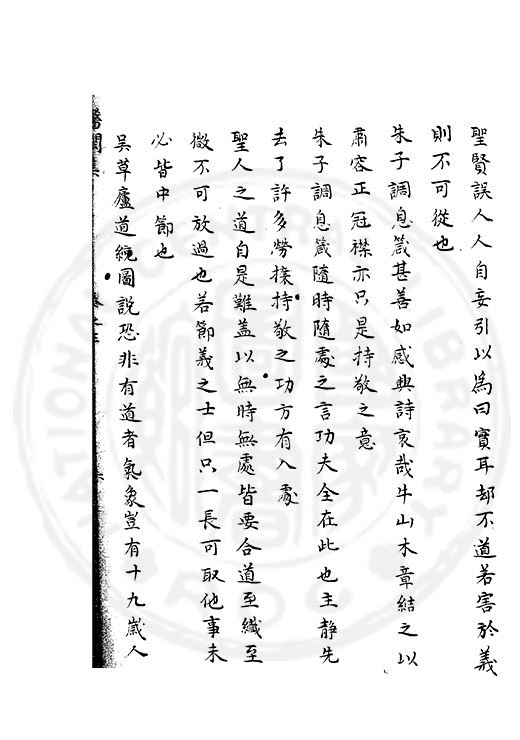 聖賢誤人人自妄引以爲口實耳却不道若害於義
則不可從也
朱子調息箴甚善如感興詩哀哉牛山木章結之以
肅容正冠襟亦只是持敬之意
朱子調息箴隨時隨處之言功夫全在此也主静先
去了許多勞攘持敬之功方有入處
聖人之道自是難盖以無時無處皆要合道至纖至
微不可放過也若節義之士但只一長可取他事未
必皆中節也
吳草廬道統圖說恐非有道者氣象豈有十九歲人
醫閭集